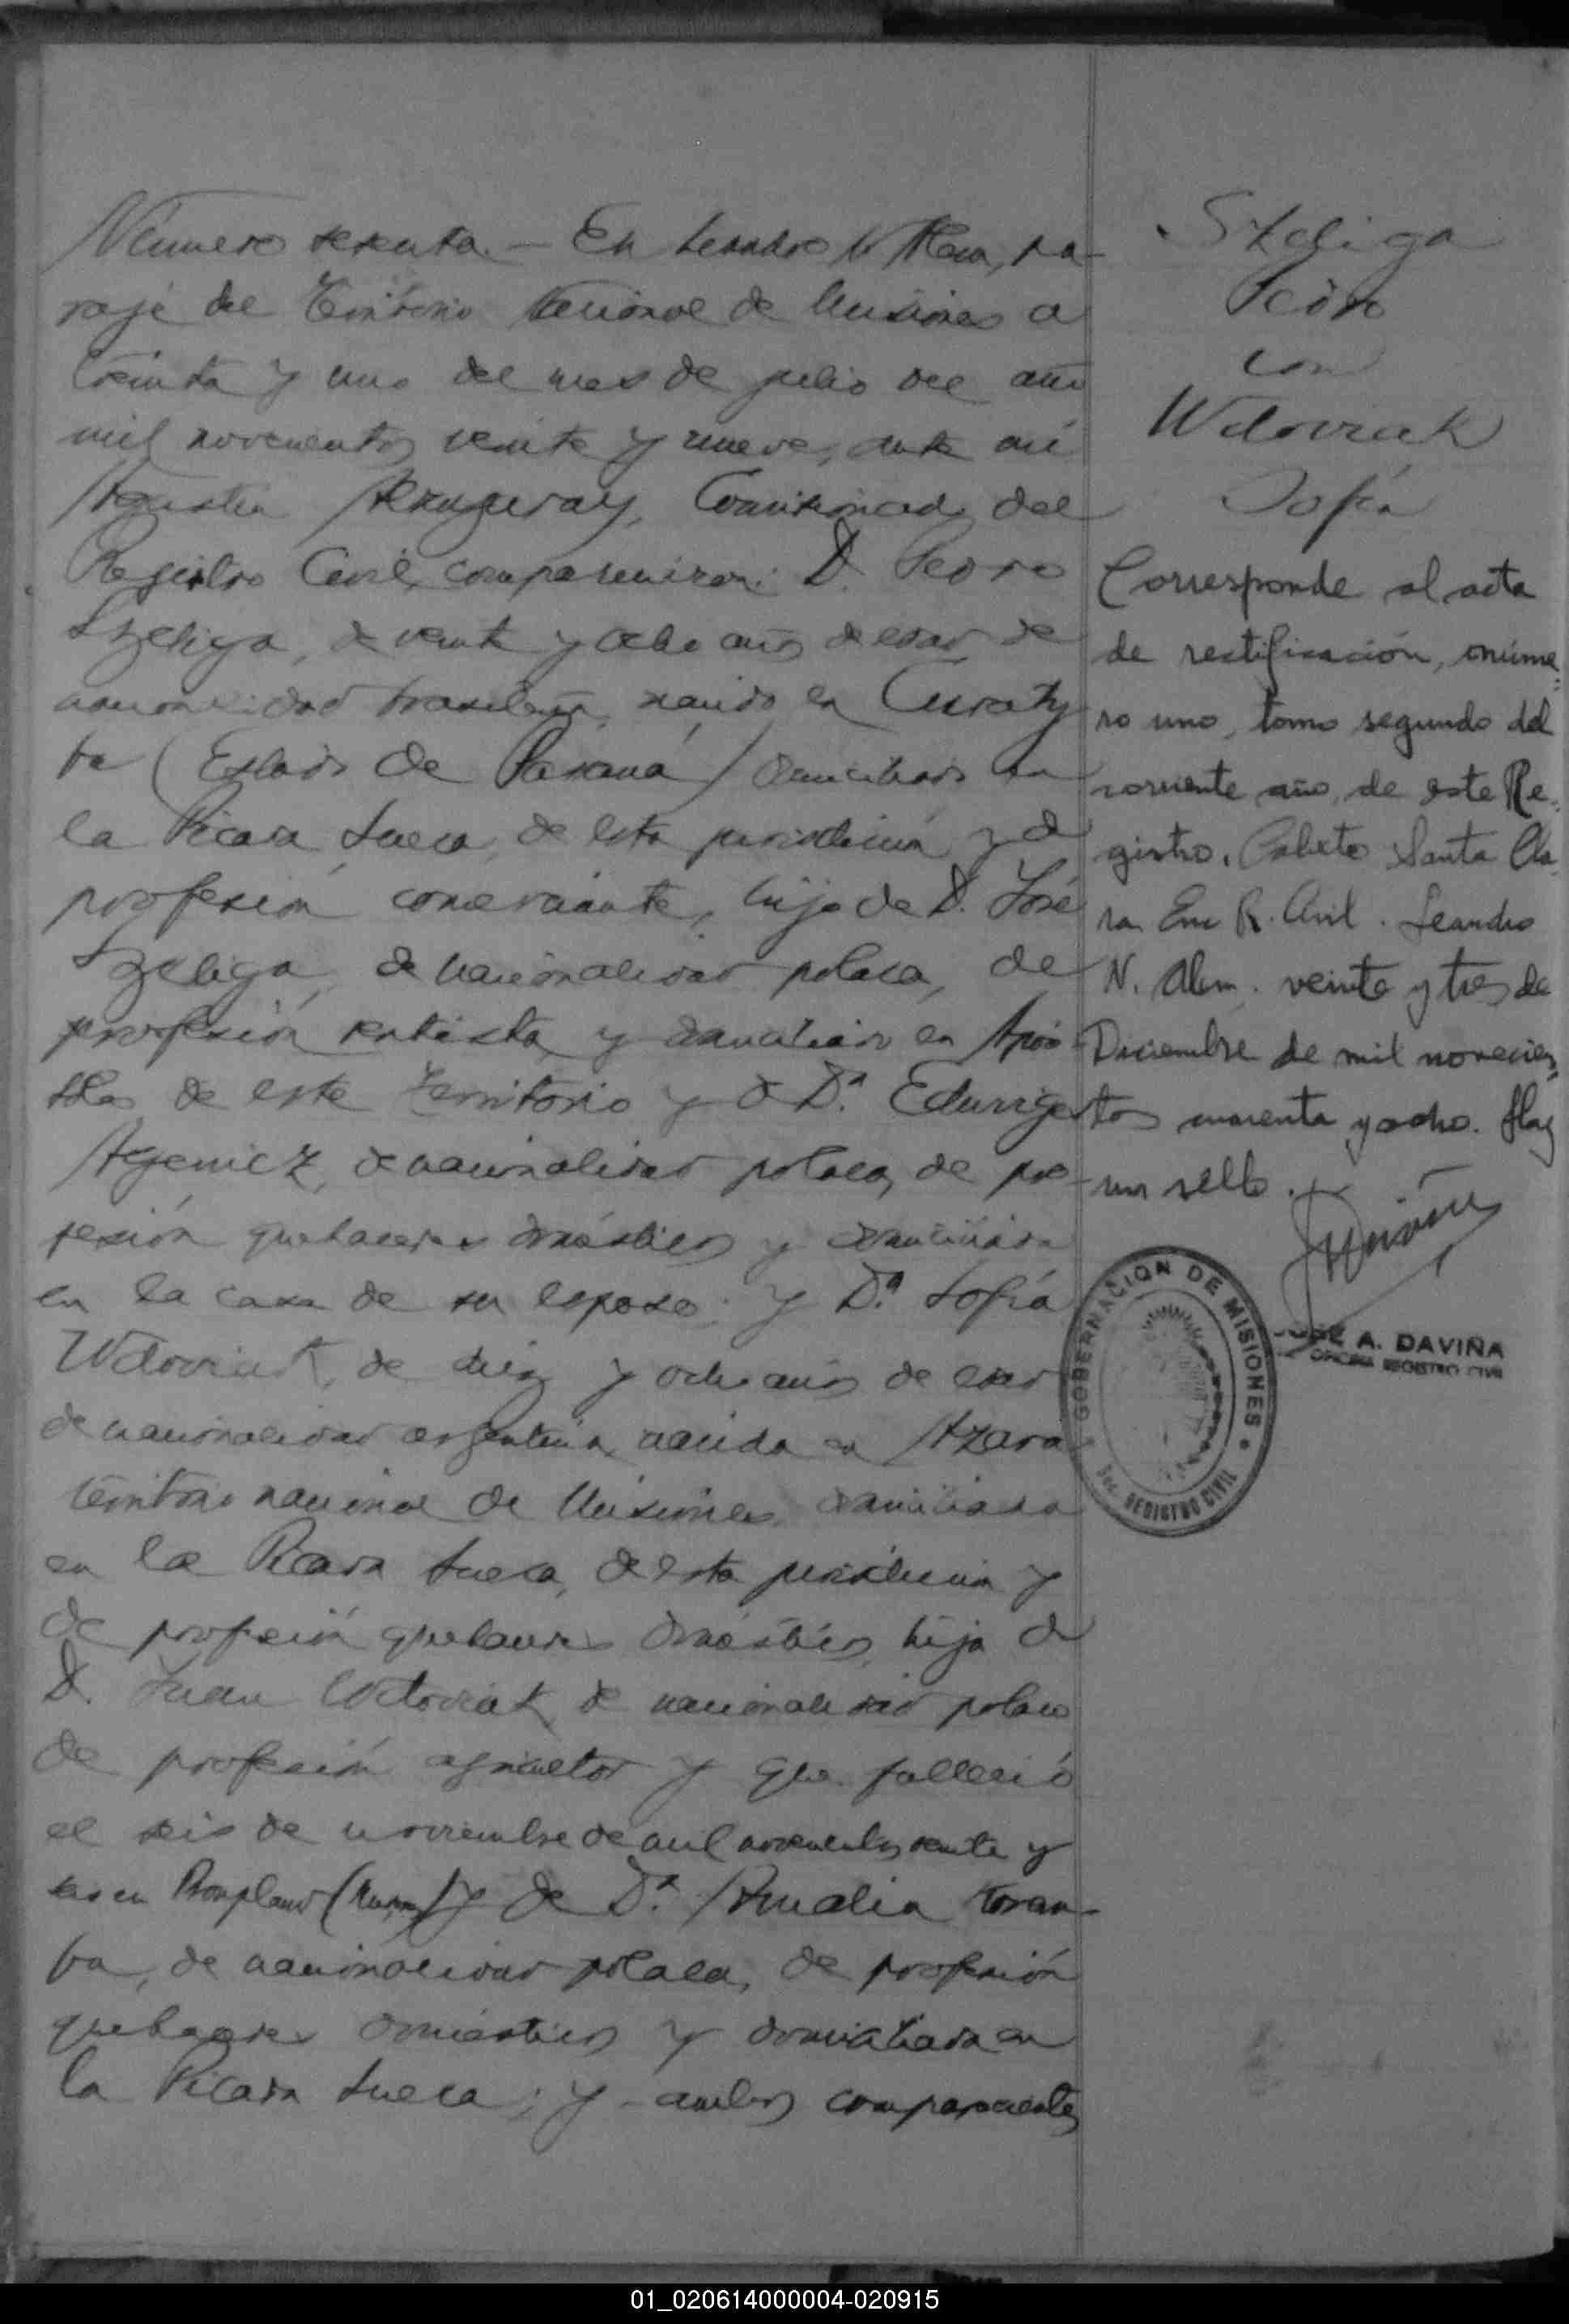 Número sesenta.— En Leandro N. Alem, pa-
raje del Territorio Nacional de Misiones a
treinta y uno del mes de julio del año
mil novecientos veinte y nueve, ante mí
Agustín Comisionado del
Registro Civil, comparecieron: D. Pedro
Szeliga, de veinte y ocho años de edad, de
nacionalidad brasileña, nacido en Curaty
ba (Estado de Paraná) domiciliado en
la Picada Sueca, de esta jurisdicción y de
profesión comerciante, hijo de D. José
Szeliga, de nacionalidad polaca, de
profesión rentista y domiciliado en Após-
toles de este Territorio y de Dª. Eduviges
de nacionalidad polaca, de pro-
fesión quehaceres domésticos y domiciliada
en la casa de su esposo; y Dª. Sofía
Wdoviak, de diez y ocho años de edad
de nacionalidad argentina, nacida en Azara
territorio nacional de Misiones, domiciliada
en la Picada Sueca, de esta jurisdicción y
de profesión quehaceres domésticos, hija de
D. Juan Wdoviak, de nacionalidad polaco
de profesión agricultor y que falleció
el seis de noviembre de mil novecientos veinte y
seis en Bonpland y de Dª. Amalia Toran-
ba, de nacionalidad polaca, de profesión
quehaceres domésticos y domiciliada en
la Picada Sueca; y ambos comparecientes
Szeliga
Pedro
con
Wdoviak
Sofía
Corresponde al acta
de rectificación, núme=
ro uno, tomo segundo del
corriente año, de este Re=
gistro. Calixto Santa Cla
ra Enc R. Civil. Leandro
N. Alem. veinte y tres de
Diciembre de mil novecien=
tos cuarenta y ocho. Hay
un sello.
GOBERNACION DE MISIONES
REGISTRO CIVIL
JOSE A. DAVIÑA
OFICINA REGISTRO CIVIL
01_020614000004-020915